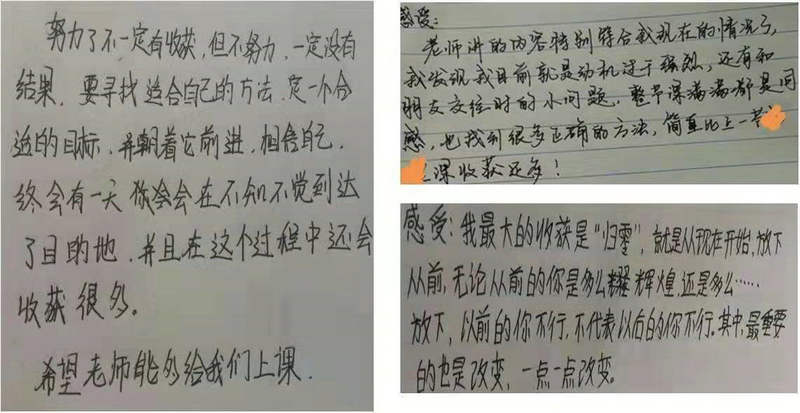 努力了不一定有收获，但不努力，一定没有
结果，要寻找适合自己的方法，定一个合
适的目标，并朝着它前进，相信自己，
终会有一天你会在不知不觉到达
了目的地，并且在这个过程中还会
收获很多。
希望老师能多给我们上课．
感受：
老师讲的内容特别符合我现在的情况了，
我发现我目前就是动机过于强烈，还有和
朋友交往时的小问题，整节课满满都是同
感，也找到很多正确的方法，简直比上一节
课收获还多！
感受：我最大的收获是“归零”，就是从现在开始，放下
从前，无论从前的你是多么辉煌，还是多么……
放下，以前的你不行，不代表以后的你不行。其中，最重要
的也是改变，一点一点改变。